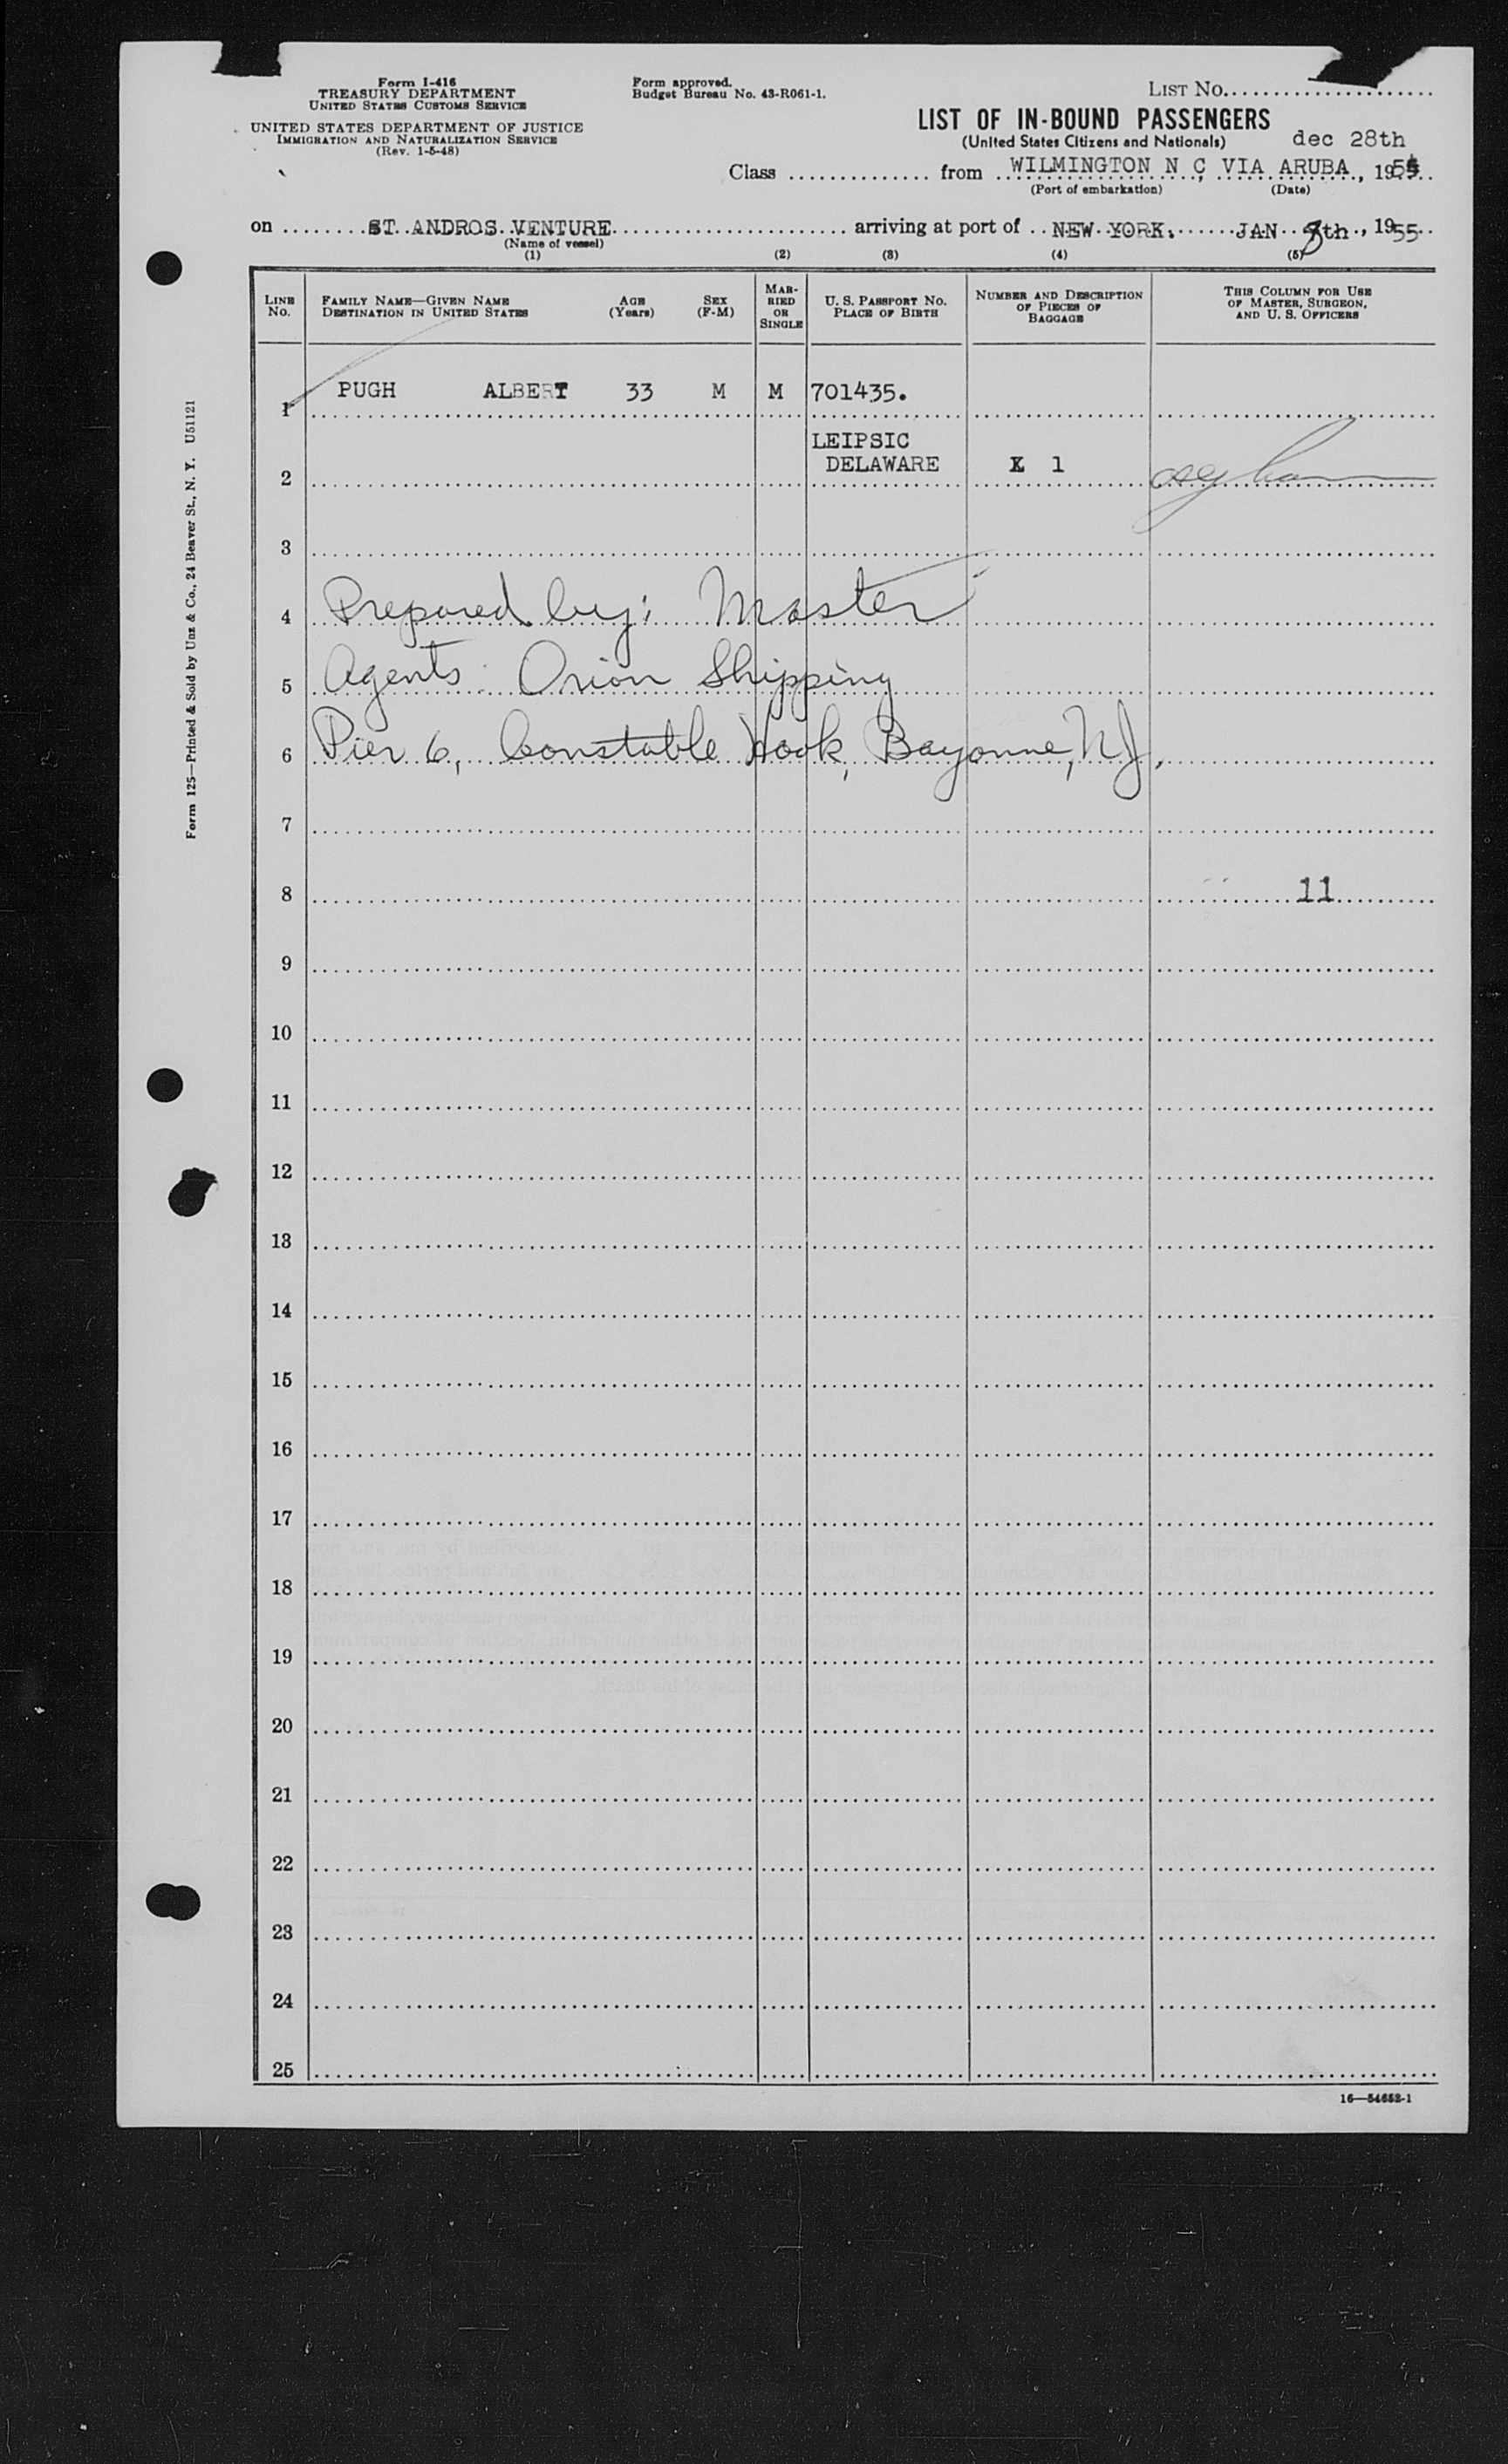 Form I-416
TREASURY DEPARTMENT
UNITED STATES CUSTOMS SERVICE
UNITED STATES DEPARTMENT OF JUSTICE
IMMIGRATION AND NATURALIZATION SERVICE
(Rev. 1-5-48)
Form approved.
Budget Bureau No. 43-R061-1.
LIST NO.
LIST OF IN-BOUND PASSENGERS
(United States Citizens and Nationals) dec 28th
Class from WILMINGTON N C VIA ARUBA, 1954
(Port of embarkation) (Date)
on ST ANDROS VENTURE arriving at port of NEW YORK. JAN 8th, 1955
(Name of vessel)
(1) (2) (3) (4) (5)
LINE NO.
FAMILY NAME—GIVEN NAME
DESTINATION IN UNITED STATES
AGE (Years)
SEX (F-M)
MARRIED OR SINGLE
U. S. PASSPORT NO.
PLACE OF BIRTH
NUMBER AND DESCRIPTION OF PIECES OF BAGGAGE
THIS COLUMN FOR USE OF MASTER, SURGEON, AND U. S. OFFICERS
1 PUGH ALBERT 33 M M 701435.
LEIPSIC
2 DELAWARE X 1
3
4 Prepared by: Master
5 Agents: Orion Shipping
6 Pier 6, Constable Hook, Bayonne, NJ.
7
8 11
9
10
11
12
13
14
15
16
17
18
19
20
21
22
23
24
25
16—54652-1
Form 125—Printed & Sold by Unz & Co., 24 Beaver St., N. Y. U51121